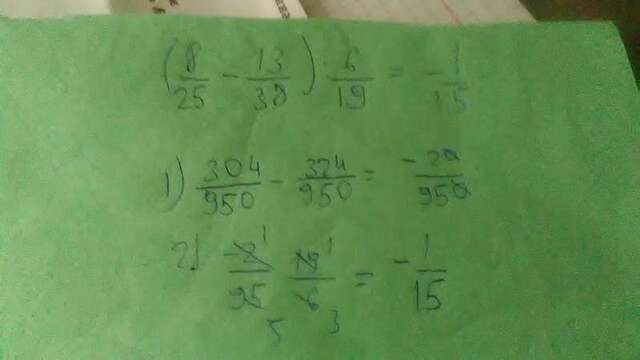 (8/25 - 13/38) : 6/19 = -1/15
1) 304/950 - 324/950 = -20/950
2) -2/95 19/6 = -1/15
1 1 5 3